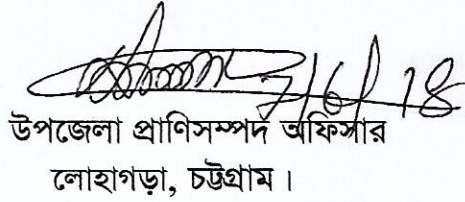 7/6/18
উপজেলা প্রাণিসম্পদ অফিসার
লোহাগড়া, চট্টগ্রাম।